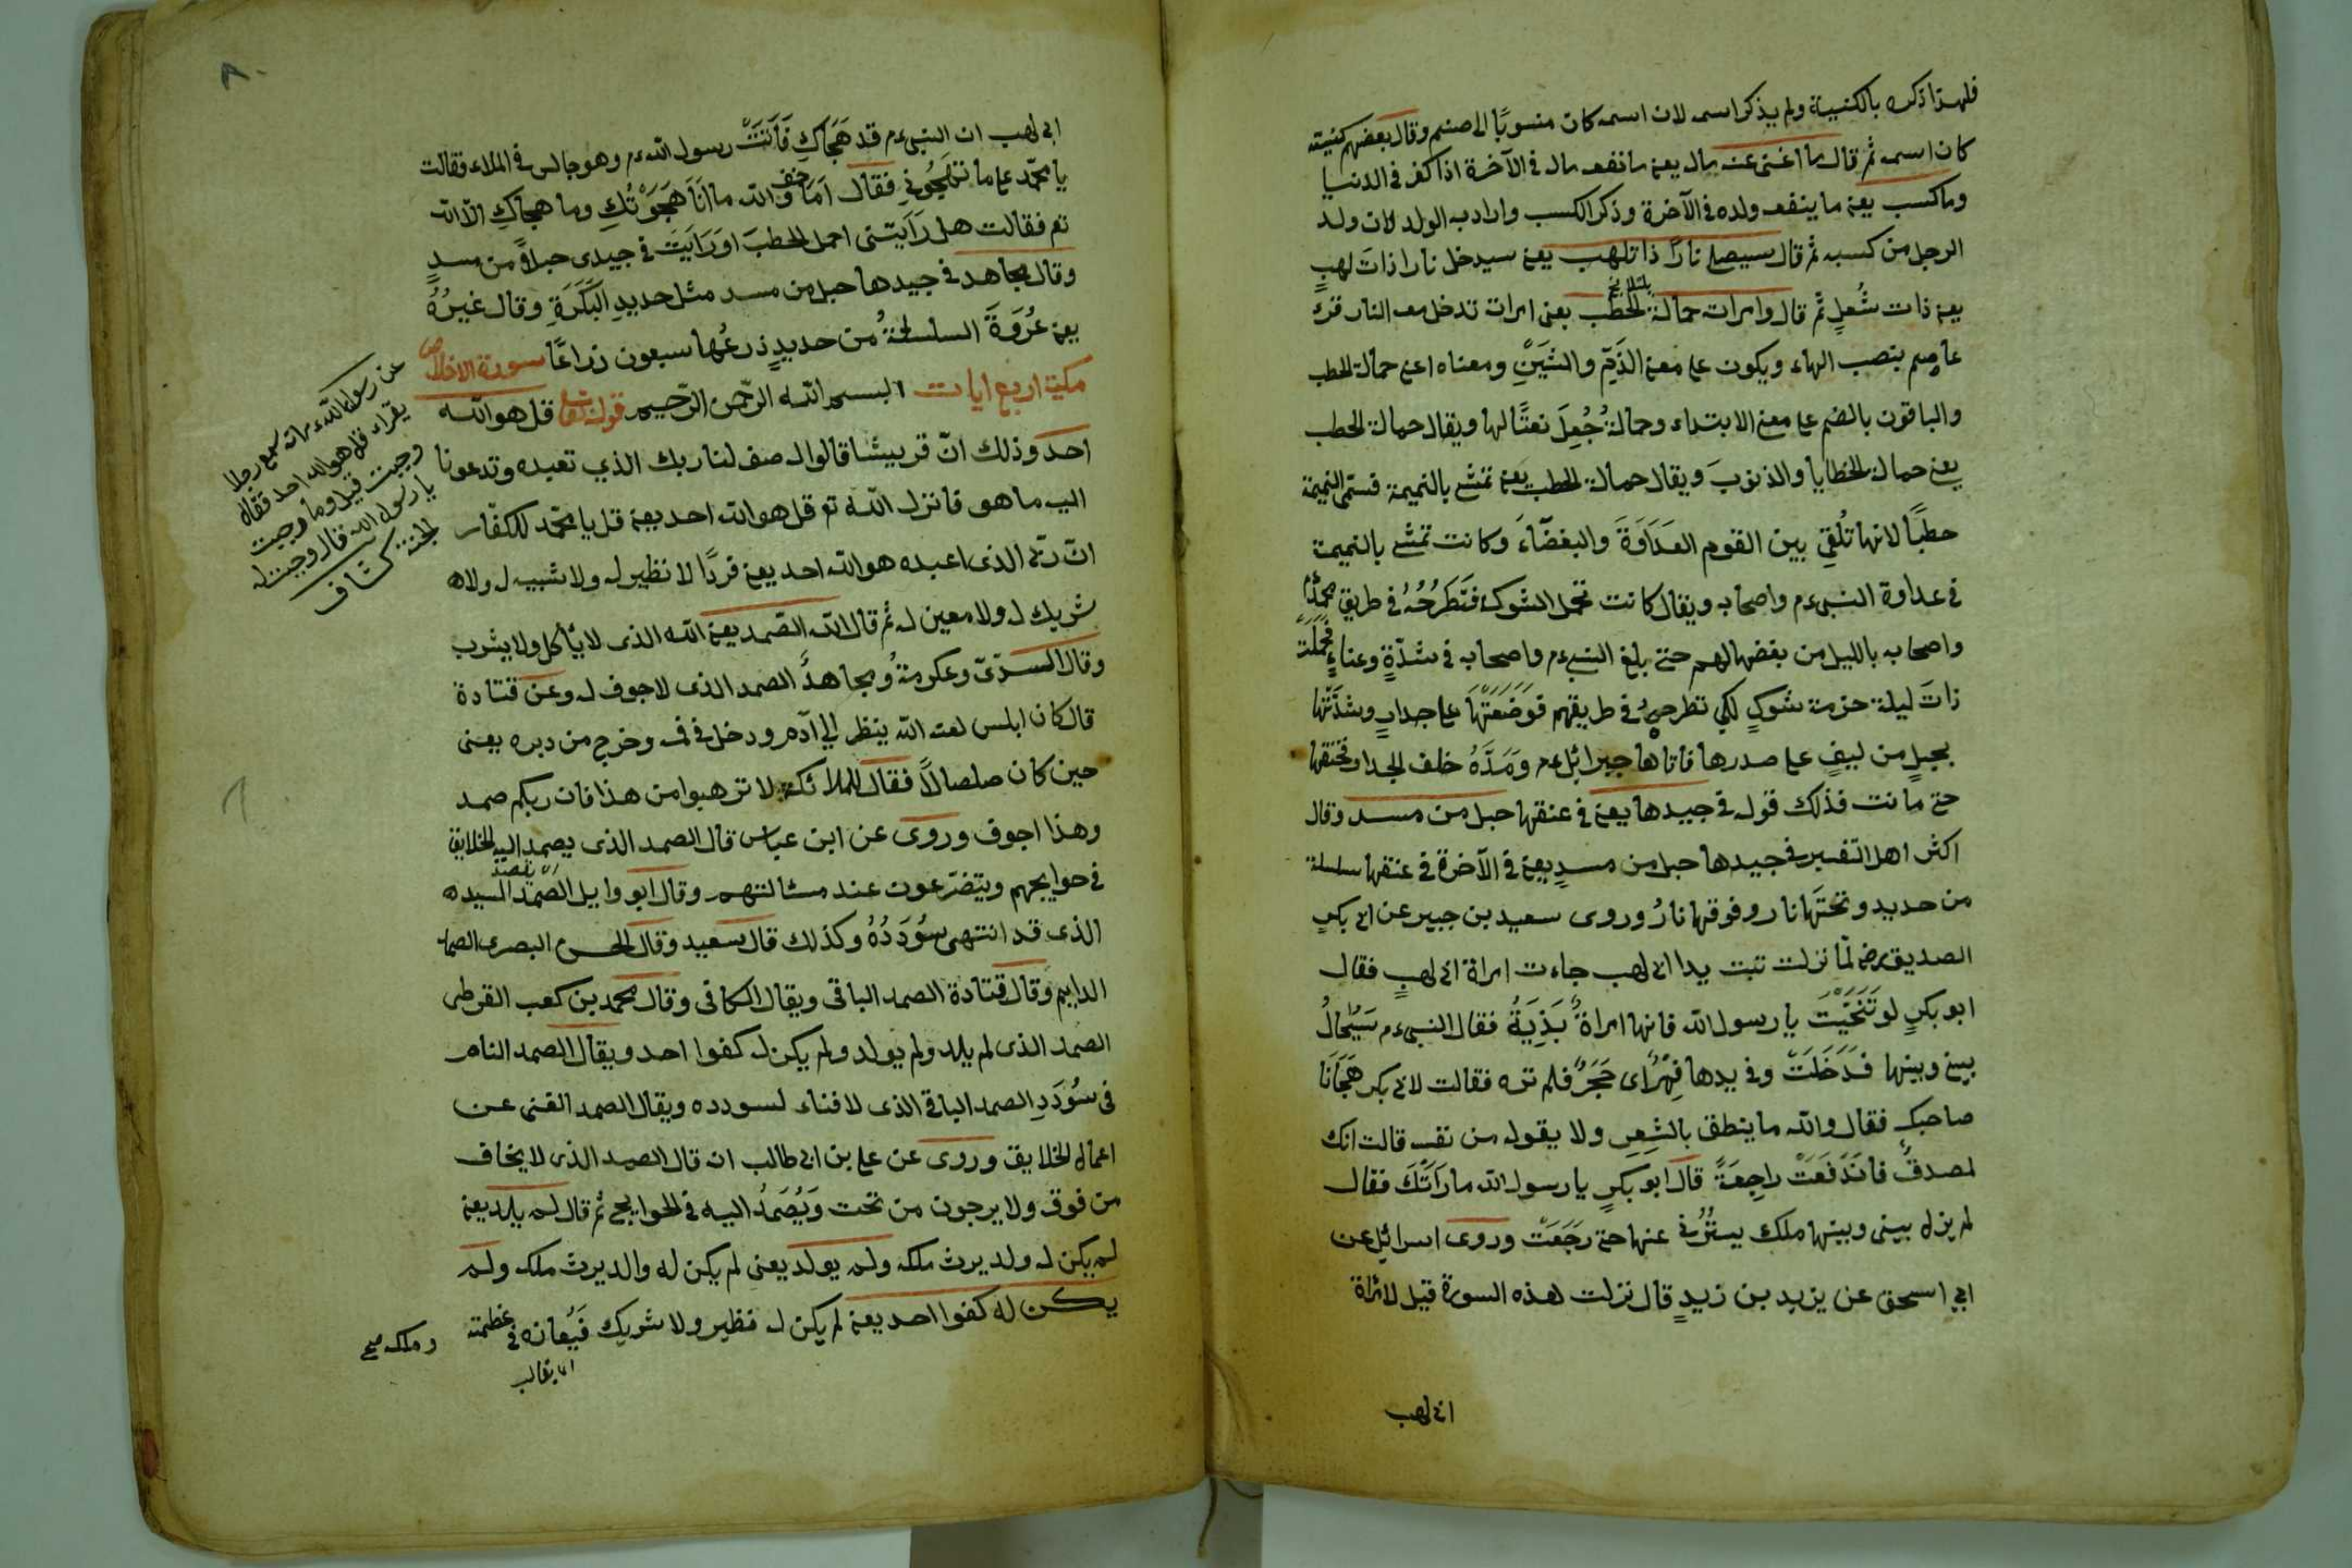 فلهذا ذكره بالكنية ولم يذكر اسمه لان اسمه كان منسوبًا الى صنم وقال بعضهم كنيته
كان اسمه ثم قال ما اغنى عنه ماله يعنى ما نفعه ماله فى الآخرة اذا كفر فى الدنيا
وما كسب يعنى ما ينفعه ولده فى الآخرة وذكر الكسب واراد به الولد لان ولد
الرجل من كسبه ثم قال سيصلى نارًا ذات لهب يعنى سيدخل نارا ذات لهبٍ
يعنى ذات شُعلٍ ثم قال وامراته حمالة الحطب يعنى امراته تدخل معه النار قرء
عاصم بنصب الهاء ويكون على معنى الذَمِّ والشَيْنِ ومعناه اعنى حمالة الحطب
والباقون بالضم على معنى الابتداء وحمالةُ جُعِلَ نعتًا لها ويقال حمالة الحطب
يعنى حمالة الخطايا والذنوبَ ويقال حمالة الحطب يعنى تمشى بالنميمة فسمى النميمة
حطبًا لانها تُلْقِى بين القوم العَدَاوَةَ والبغضَآءَ وكانت تمشى بالنميمة
فى عداوة النبىءم واصحابه ويقال كانت تحمل الشوك فَتَطْرَحُهُ فى طريق محمّدٍ
واصحابه بالليل من بغضها لهم حتى بلغ النبىءم واصحابه فى شدّةٍ وعناءٍ فَحَمَلَتْ
ذاتَ ليلة حزمة شوكٍ لكى تطرحهُ فى طريقهم فَوَضَعَتْهَا على جدارٍ وشدَّتْها
بحبلٍ من ليفٍ على صدرها فاتاها جبرائلءم وَمَدَّهُ خلف الجدار فخنقها
حتى ماتت فذلك قوله فى جيدها يعنى فى عنقها حبل من مسد وقال
اكثر اهل التفسير فى جيدها حبل من مسدٍ يعنى فى الآخرة فى عنقها سلسلة
من حديد وتحتَها نار وفوقها نارُ وروى سعيد بن جبير عن ابى بكرٍ
الصديق رضه لمّا نزلت تبت يدا ابى لهب جاءت امراة ابى لهبٍ فقال
ابو بكرٍ لو تَنَحَّيْتَ يا رسول الله فانها امراةٌ بَذِيَةُ فقال النبىءم سَيُحَالُ
بينى وبينها فَدَخَلَتْ وفى يدها فِهْرٌ اى حَجَرٌ فلم تره فقالت لابى بكر هَجَانَا
صاحبك فقال والله ما ينطق بالشِعِرِ ولا يقوله من نفسه قالت انك
لمصدقٌ فاندَفَعَتْ راجِعَةً قال ابو بكرٍ يا رسول الله ما رَاَتْكَ فقال
لم يزل بينى وبينها ملك يسترُنى عنها حتى رَجَعَتْ وروى اسرائيل عن
ابى اسحق عن يزيد بن زيدٍ قال نزلت هذه السورة قيل لامراة
ابى لهب
ابى لهب ان النبىءم قد هَجَاكِ فَاَتَتْ رسول اللهءم وهو جالس فى الملاء فقالت
يا محمّد على ما تَهْجُونِى فقال اَمَا والله ما اَنَا هَجَوْتُكِ وما هجاكِ الّا الله
تع فقالت هل رَاَيتنى احمل الحطبَ او رَاَيتَ فى جيدى حبلاً من مسدٍ
وقال مجاهد فى جيدها حبل من مسد مثل حديد البَكَرَةِ وقال غيرُهُ
يعنى عُرْوَةَ السلسلةُ من حديدٍ ذرعُها سبعون ذراعًا سورة الاخلاص
مكية اربع ايات بسم الله الرّحمن الرّحيم قوله تعا قل هو الله
احد وذلك انّ قريشا قالوا له صف لنا ربك الذي تعبده وتدعونا
اليه ما هو فانزل الله تع قل هو الله احد يعنى قل يا محمّد للكفّار
انّ ربّى الذى اعبده هو الله احد يعنى فردًا لا نظير له ولا شبيه له ولا
شريك له ولا معين له ثم قال الله الصّمد يعنى الله الذى لا يأكل ولا يشرب
وقال السدىّ وعكرمةُ ومجاهدُ الصمد الذى لا جوف له وعن قتادة
قال كان ابلس لعنه الله ينظر الي آدم ودخل فى فمه وخرج من دبره يعنى
حين كان صلصالاً فقال للملائكة لا ترهبوا من هذا فان ربكم صمد
وهذا اجوف وروى عن ابن عباس قال الصمد الذى يصمد اليه الخلايق
فى حوايجهم ويتضرّعون عند مسٔالتهم وقال ابو وايل الصّمد السيد
الذى قد انتهى سُوْدَدُهُ وكذلك قال سعيد وقال الحسن البصرى الصمد
الدايم وقال قتادة الصمد الباقى ويقال الكافى وقال محمد بن كعب القرظى
الصمد الذى لم يلد ولم يولد ولم يكن له كفوا احد ويقال الصمد التام
فى سُوْدَدِهِ الصمد الباقى الذى لا فناء لسودده ويقال الصمد الغنى عن
اعمال الخلايق وروى عن على بن ابى طالب انه قال الصمد الذى لا يخاف
من فوقه ولا يرجون من تحته وَيُصْمَدُ اليه فى الحوايج ثم قال لم يلد يعنى
لم يكن له ولد يرث ملكه ولم يولد يعنى لم يكن له والد يرث ملكه ولم
يكن له كفوا احد يعنى لم يكن له نظير ولا شريك فَيُعانده فى عظمته
وملكه صح
عن رسول اللهءم انه سمع رجلا
يقراء قل هو الله احد فقال
وجبت قيل وما وجبت
يا رسول الله قال وجبت له
الجنة كشاف